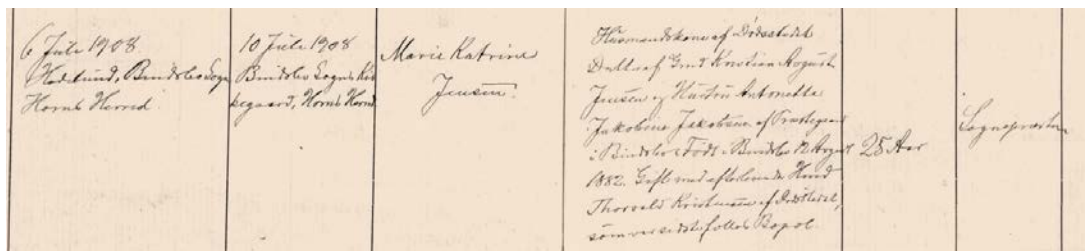 6 Juli 1908
Hedelund, Bindslev Sogn
Horns Herred.
10 Juli 1908
Bindslev Sogns Kir-
kegaard, Horns Herred
Marie Katrine
Jensen.
Husmandskone af Dødsstedet
Datter af Gmd Kristian August
Jensen og Hustru Antonette
Jakobine Jakobsen af
i Bindslev. Født i Bindslev 12 August
1882. Gift med efterlevende Hmd
Thorvald Kristensen af Dødsstedet,
som var sidste fælles Bopæl.
25 Aar
Sognepræsten